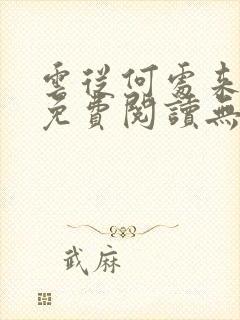 雲從何處來
免費閱讀無
武麻